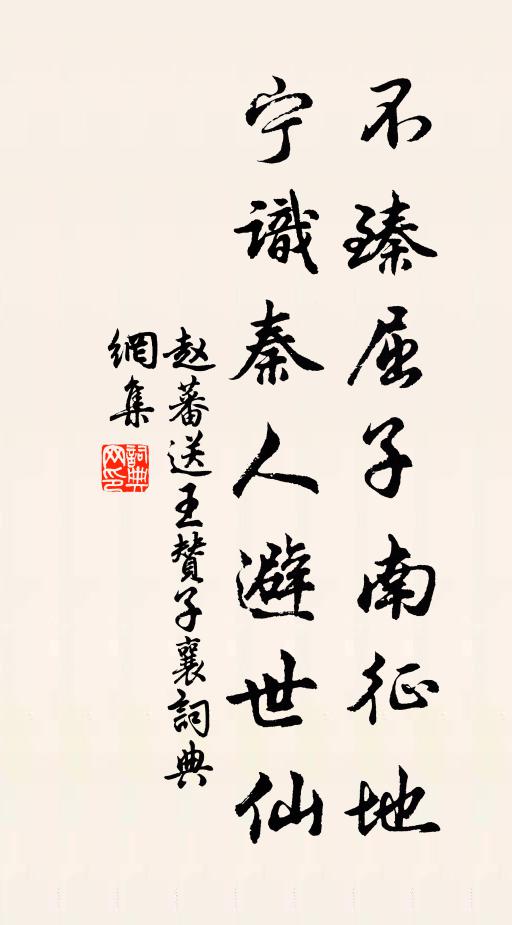 不臻屈子南征地
宁識秦人避世仙
赵蕃送王賛子襄詞典
網集
詞典
网印